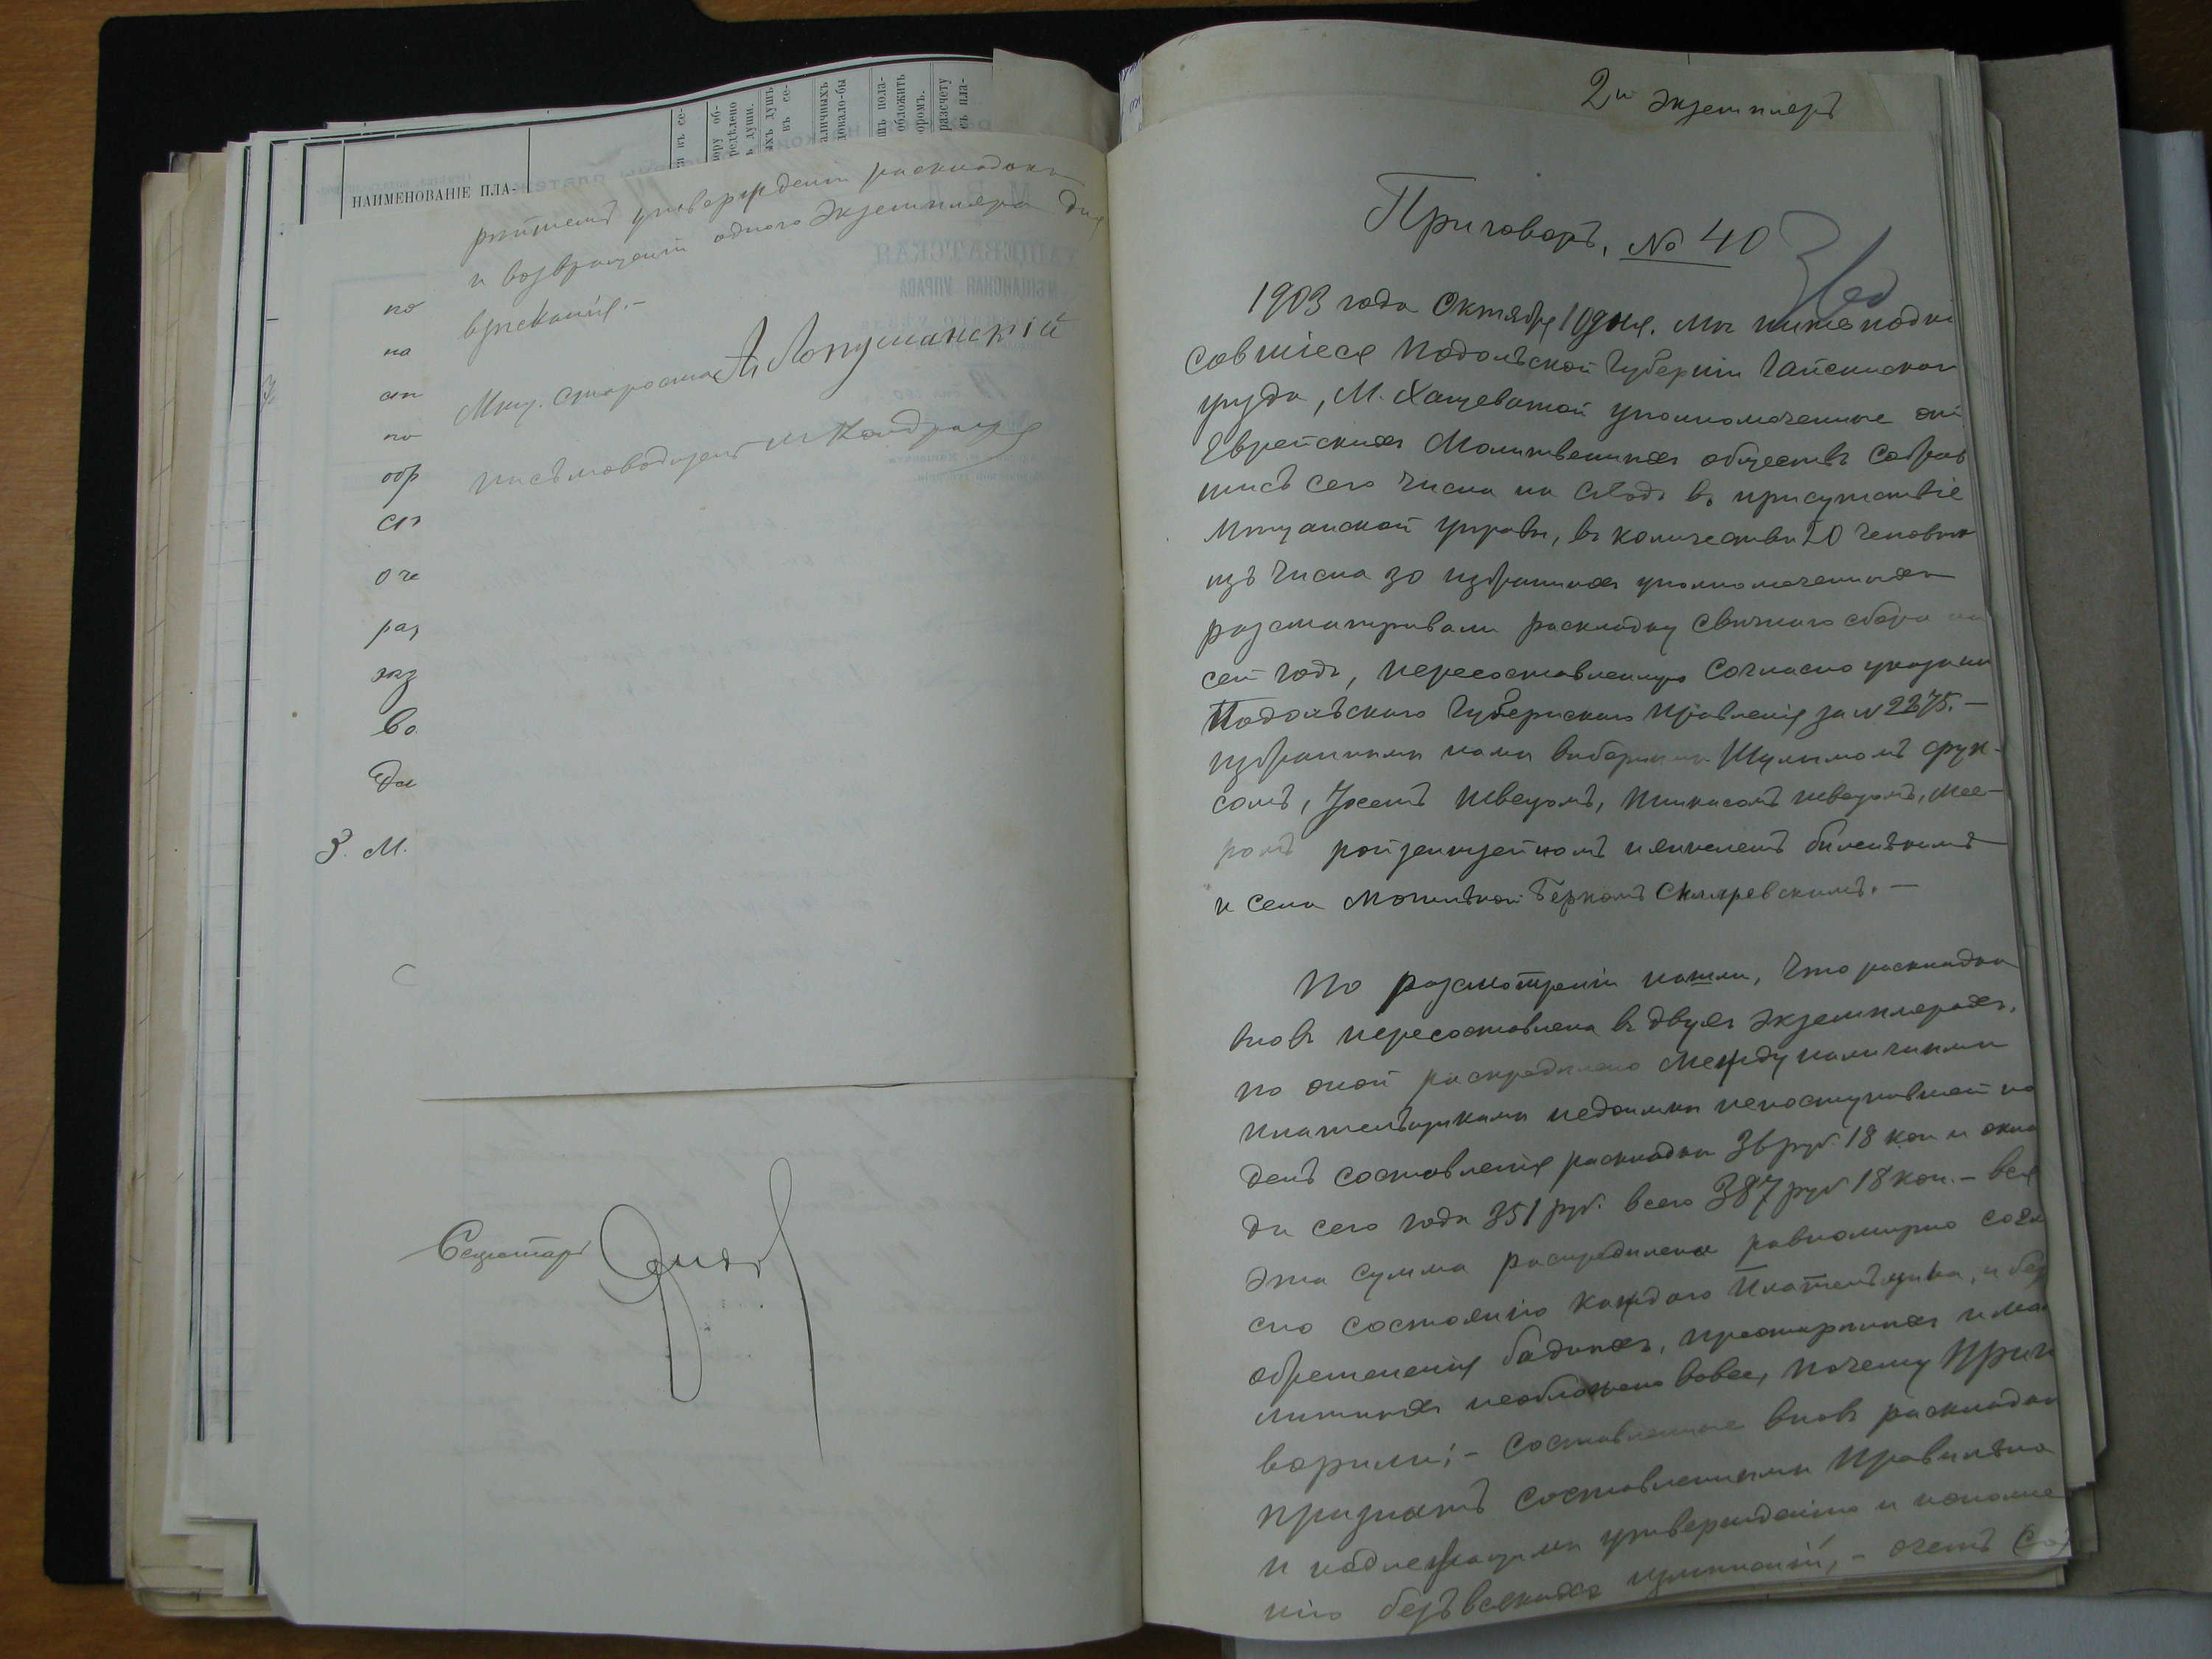 НАИМЕНОВАНІЕ ПЛА-
утвержденіи раскладокъ
и возвращеніи одного экземпляра для
взысканія.-
Мѣщ. староста А. Лопушанскій
письмоводитель
по
на
по
обр
оче
раз
экз
во
3. М.
Секретарь
2й экземпляръ
Приговоръ, № 40
1903 года Октября 10 дня. Мы нижеподпи
савшіеся Подольской Губерніи Гайсинскаго
уѣзда, М. Хащеватой уполномоченные отъ
Еврейскихъ Молитвенныхъ обществъ собрав
шись сего числа на сходъ въ присутствіе
Мѣщанской управы, въ количествѣ 20 человѣкъ
изъ числа 30 избранныхъ уполномоченныхъ
разсматривали раскладку свѣчнаго сбора на
сей годъ, пересоставленную согласно указанія
Подольскаго Губернскаго Правленія за № 2275.-
избранными нами выборными Шулимомъ Фук-
сомъ, Швецомъ, Пинкасомъ Швецомъ, Мее-
ромъ Ройзенцвейгомъ
и села Могильной Беркомъ Скляревскимъ.-
По разсмотреніи нашли, что раскладка
вновь пересоставлена въ двухъ экземплярахъ,
по оной распредѣлено между наличными
плательщиками недоимки непоступившей по
день составленія раскладки 36 руб. 18 коп и окла
да сего года 351 руб. всего 387 руб 18 коп.- вся
эта сумма распредѣлена равномѣрно соглa
сно состоянію каждаго плательщика, и без
обремененія бѣдныхъ, престарѣлыхъ и мало
лѣтныхъ необложено вовсе, почему приго
ворили:- составленные вновь раскладки
признать составленными правильно
и подлежащими утвержденію и исполне
нію безъ всякихъ измѣненій,- о чемъ